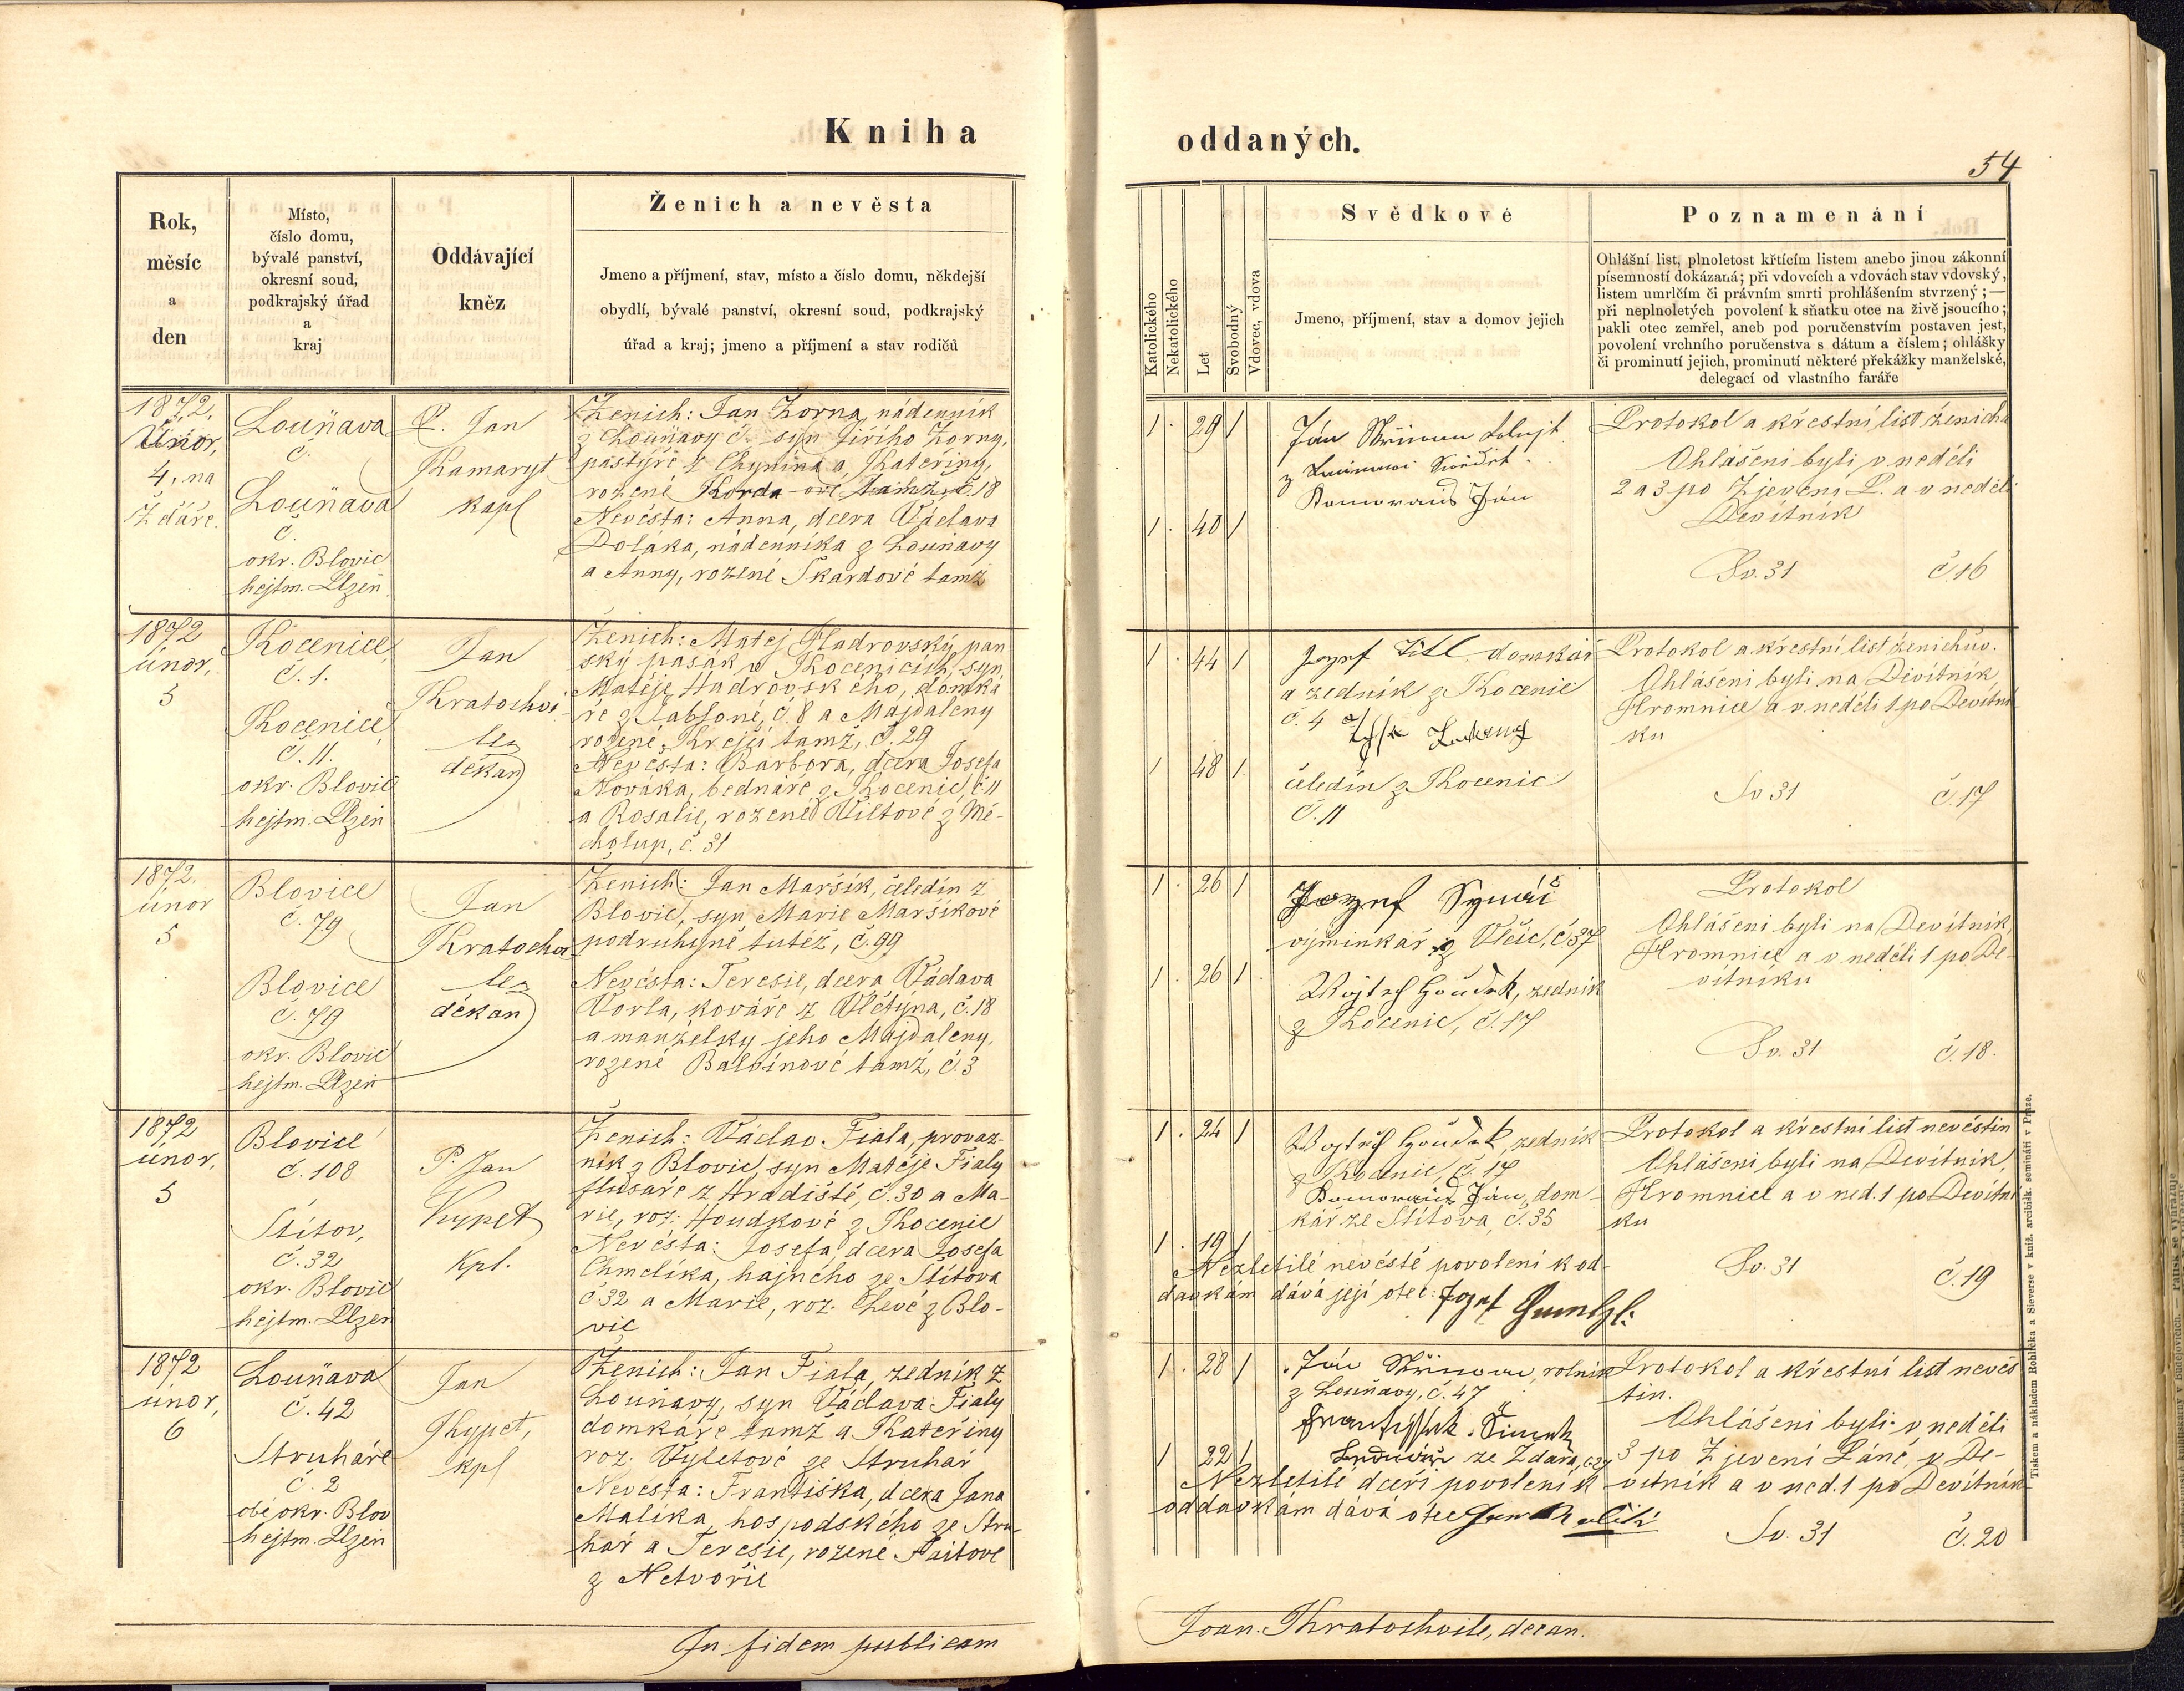 Kniha
oddaných.
54
Rok,
měsíc
a
den
Místo,
číslo domu,
bývalé panství,
okresní soud,
podkrajský úřad
a
kraj
Oddávající
kněz
Ženich a nevěsta
Jmeno a příjmení, stav, místo a číslo domu, někdejší
obydlí, bývalé panství, okresní soud, podkrajský
úřad a kraj; jmeno a příjmení a stav rodičů
Katolického
Nekatolického
Let
Svobodný
Vdovec, vdova
Svědkové
Jmeno, příjmení, stav a domov jejich
Poznamenání
Ohlášní list, plnoletost křtícím listem anebo jinou zákonní
písemností dokázaná; při vdovcích a vdovách stav vdovský,
listem umrlčím či právním smrti prohlášením stvrzený; —
při neplnoletých povolení k sňatku otce na živě jsoucího;
pakli otec zemřel, aneb pod poručenstvím postaven jest,
povolení vrchního poručenstva s dátum a číslem; ohlášky
či prominutí jejich, prominutí některé překážky manželské,
delegací od vlastního faráře
1872,
Únor,
4, na
Ždáře.
Louňava
č.
Louňava
č.
okr. Blovic
hejtm. Plzeň
P. Jan
Kamaryt
kapl
Ženich: Jan Zorna, nádenník
z Louňavy č. syn Jiřího Zorny,
pastýře z Chynína a Kateřiny,
rozené Korda-ové tamž, č. 18
Nevěsta: Anna, dcera Václava
Poláka, nádenníka z Louňavy
a Anny, rozené Škardové tamž
1. 29 1
1. 40 1
Ján
z
Ján
Protokol a křestní list ženicha
Ohlášeni byli v neděli
2 a 3 po Zjevení P. a v neděli
Devítník
Sv. 31 č. 16
1872
únor,
5
Kocenice,
č. 1.
Kocenice,
č. 11.
okr. Blovic
hejtm. Plzeň
Jan
Kratochvi-
le
děkan
Ženich: Matěj Hadrovský, pan
ský pasák v Kocenicích, syn
Matěje Hadrovského, domká
ře z Jabloné, č. 8 a Majdaleny
rozené Krejčí tamž, č. 29
Nevěsta: Barbora, dcera Josefa
Nováka, bednáře z Kocenic, č 11
a Rosalie, rozené Wiltové z Mě-
cholup, č. 31
1. 44 1
1 48 1
Jozef Titl domkář
a zedník z Kocenic
č. 4
čeledín z Kocenic
č. 11
Protokol a křestní list ženichův.
Ohlášeni byli na Devítník,
Hromnice a v neděli 1 po Devítní
ku
Sv 31 č. 17
1872.
únor
5
Blovice
č. 79
Blovice
č. 79
okr. Blovic
hejtm. Plzeň
Jan
Kratochvi
le
děkan
Ženich: Jan Maršík, čeledín z
Blovic, syn Marie Maršíkové
podruhyně tutéž, č. 99
Nevěsta: Teresie, dcera Václava
Vorla, kováře z Vlčtýna, č. 18
a manželky jeho Majdaleny,
rozené Balbínové tamž, č. 3
1. 26 1
1. 26 1
Jozef
výminkář z Vlčic, č. 37
Wojtěch Houdek, zedník
z Kocenic, č. 17
Protokol
Ohlášeni byli na Devítník,
Hromnice a v neděli 1 po De-
vítníku
Sv. 31 č. 18.
1872
únor,
5
Blovice
č. 108
Štítov,
č. 32
okr. Blovic
hejtm. Plzeň
P. Jan
Kypet
kpl.
Ženich: Václav Fiala, provaz-
ník z Blovic, syn Matěje Fialy
flusaře z Hradiště, č. 30 a Ma-
rie, roz. Houdkové z Kocenic
Nevěsta: Josefa, dcera Josefa
Chmelíka, hajného ze Štítova
č 32 a Marie, roz. Chevé z Blo-
vic
1. 24 1
1. 19 1
Wojtěch Houdek, zedník
z Kocenic, č. 17
Ján, dom-
kář ze Štítova, č. 35
Nezletilé nevěstě povolení k od-
davkám dává její otec: Jozef
Protokol a křestní list nevěstin
Ohlášeni byli na Devítník,
Hromnice a v ned. 1 po Devítní
ku
Sv. 31 č. 19
1872
únor,
6
Louňava
č. 42
Struhaře
č. 2
obé okr. Blov
hejtm. Plzeň
Jan
Kypet,
kpl
Ženich: Jan Fiala, zedník z
Louňavy, syn Václava Fialy
domkáře tamž a Kateřiny
roz. Vyletové ze Struhař
Nevěsta: Františka, dcera Jana
Malíka, hospodského ze Stru-
hař a Teresie, rozené
z Netvořic
1. 28 1
1 22 1
Ján rolník
z Louňavy, č. 47
František Šimek
ze Zdára,
Nezletilé dceři povolení k
oddavkám dává otec
Protokol a křestní list nevěs
tin.
Ohlášeni byli v neděli
3 po Zjevení Páně, v De-
vítník a v ned. 1 po Devítník
Sv. 31 č. 20
In fidem publicam
Joan. Kratochvile, decan.
Tiskem a nákladem Rohlíčka a Sieverse v kníž. arcibisk. semináři v Praze.